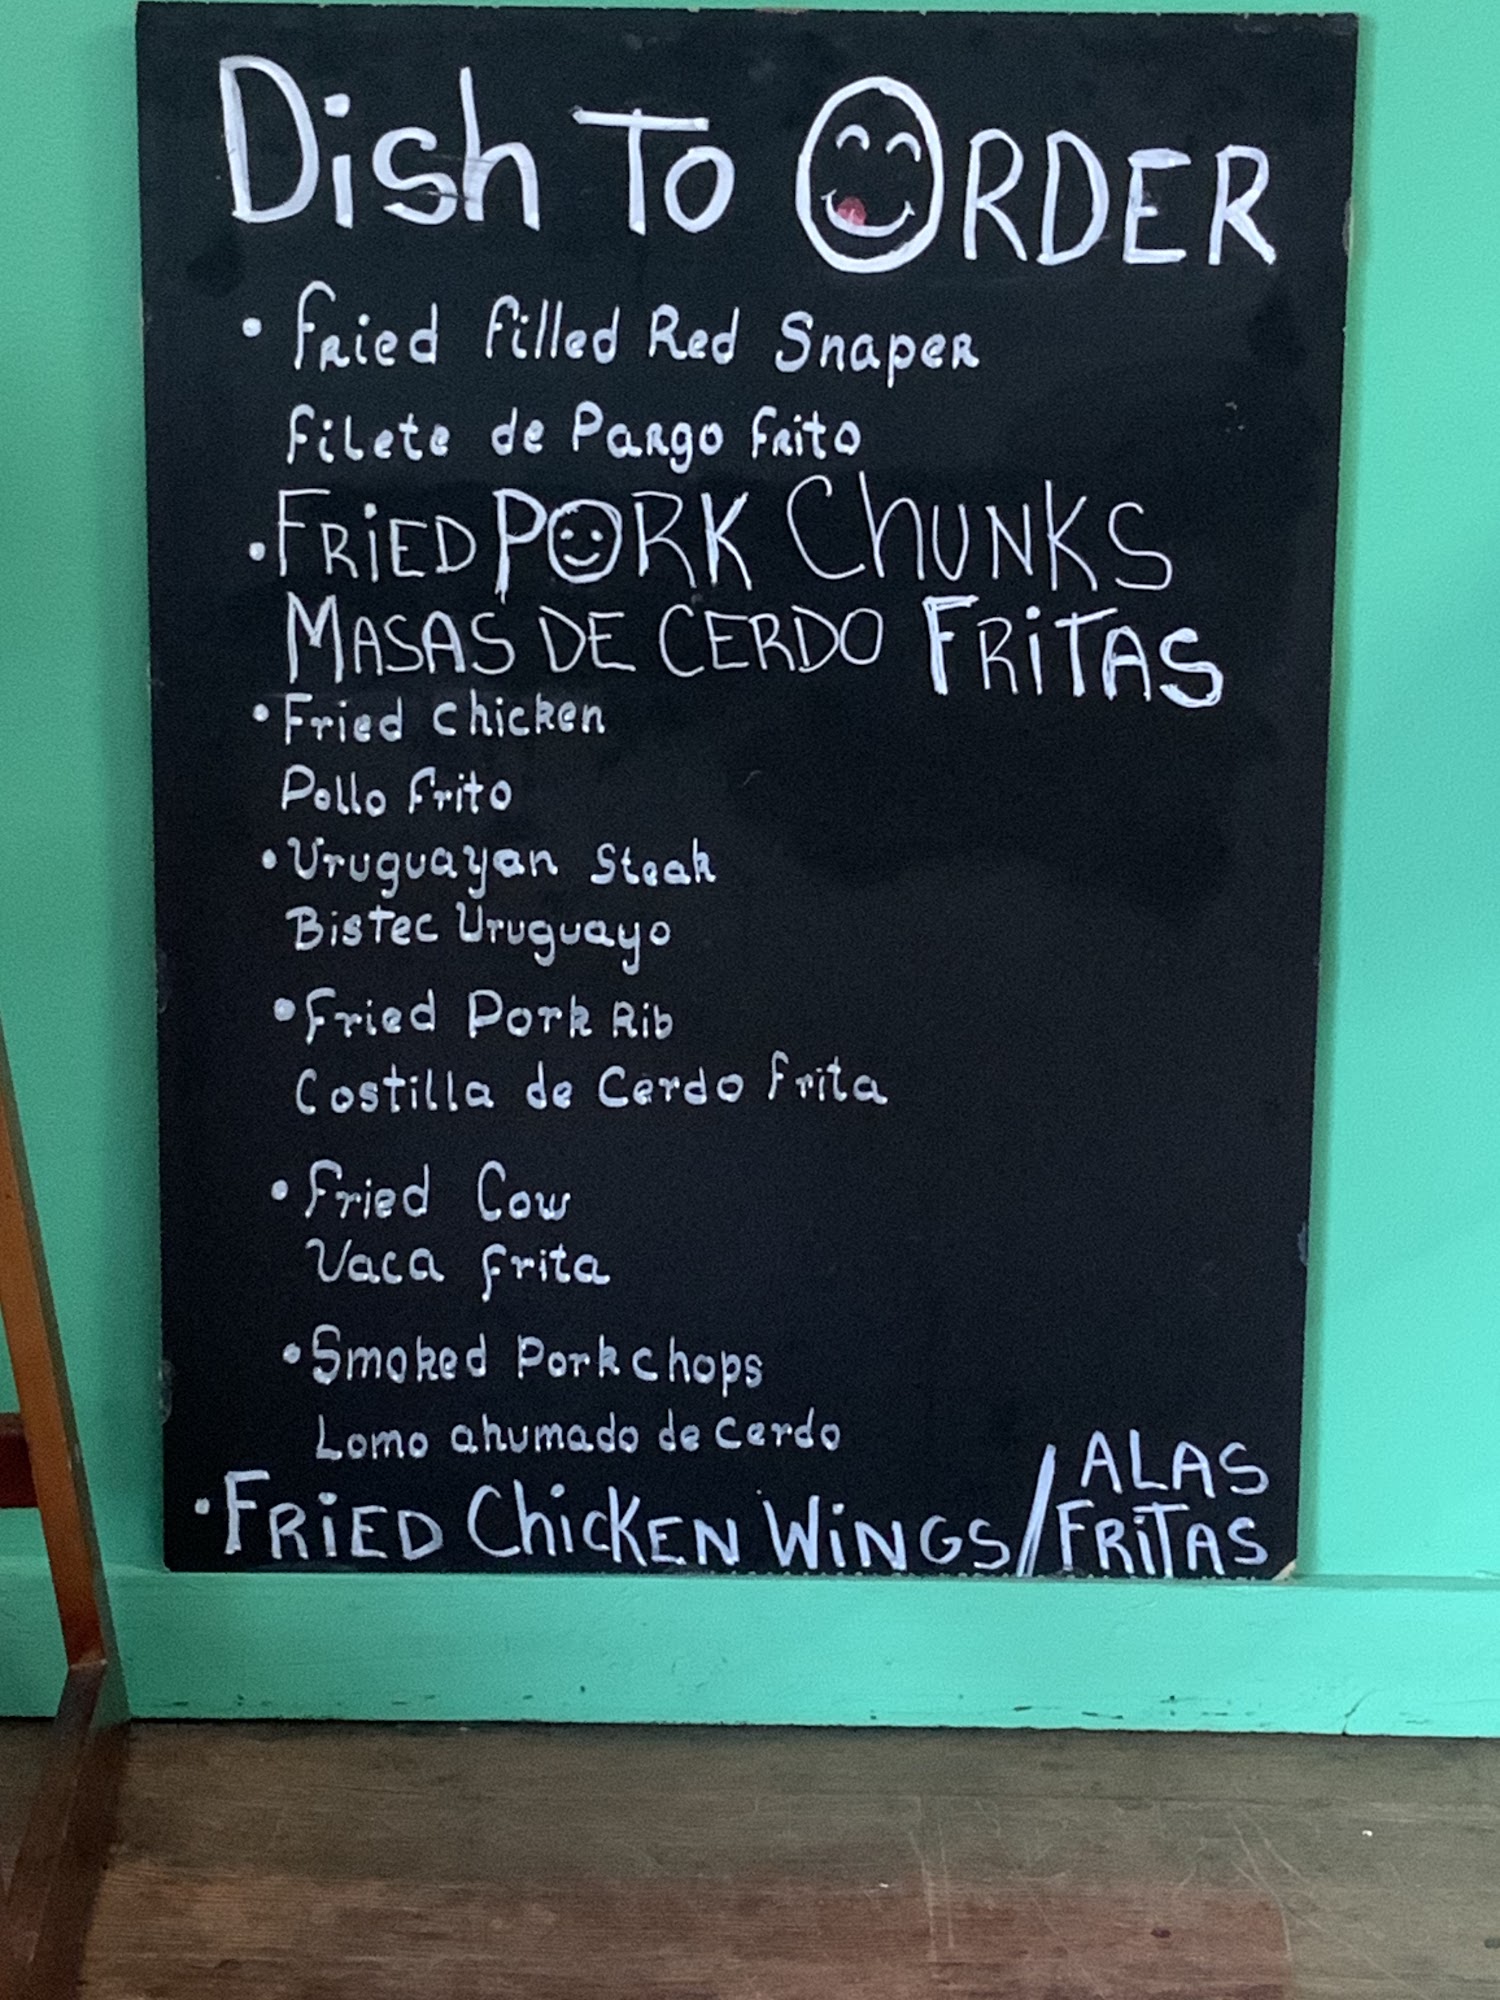 Dish To ORDER
• Fried filled Red Snaper
Filete de Pargo Frito
• FRiED PORK ChUNKS
MASAS DE CERDO FRiTAS
• Fried chicken
Pollo frito
• Uruguayan Steak
BisTec Uruguayo
• Fried Pork Rib
Costilla de Cerdo frita
• Fried Cow
Vaca frita
• Smoked Pork chops
Lomo ahumado de cerdo
• FRiED ChicKEN WiNGS / ALAS
FRiTAS